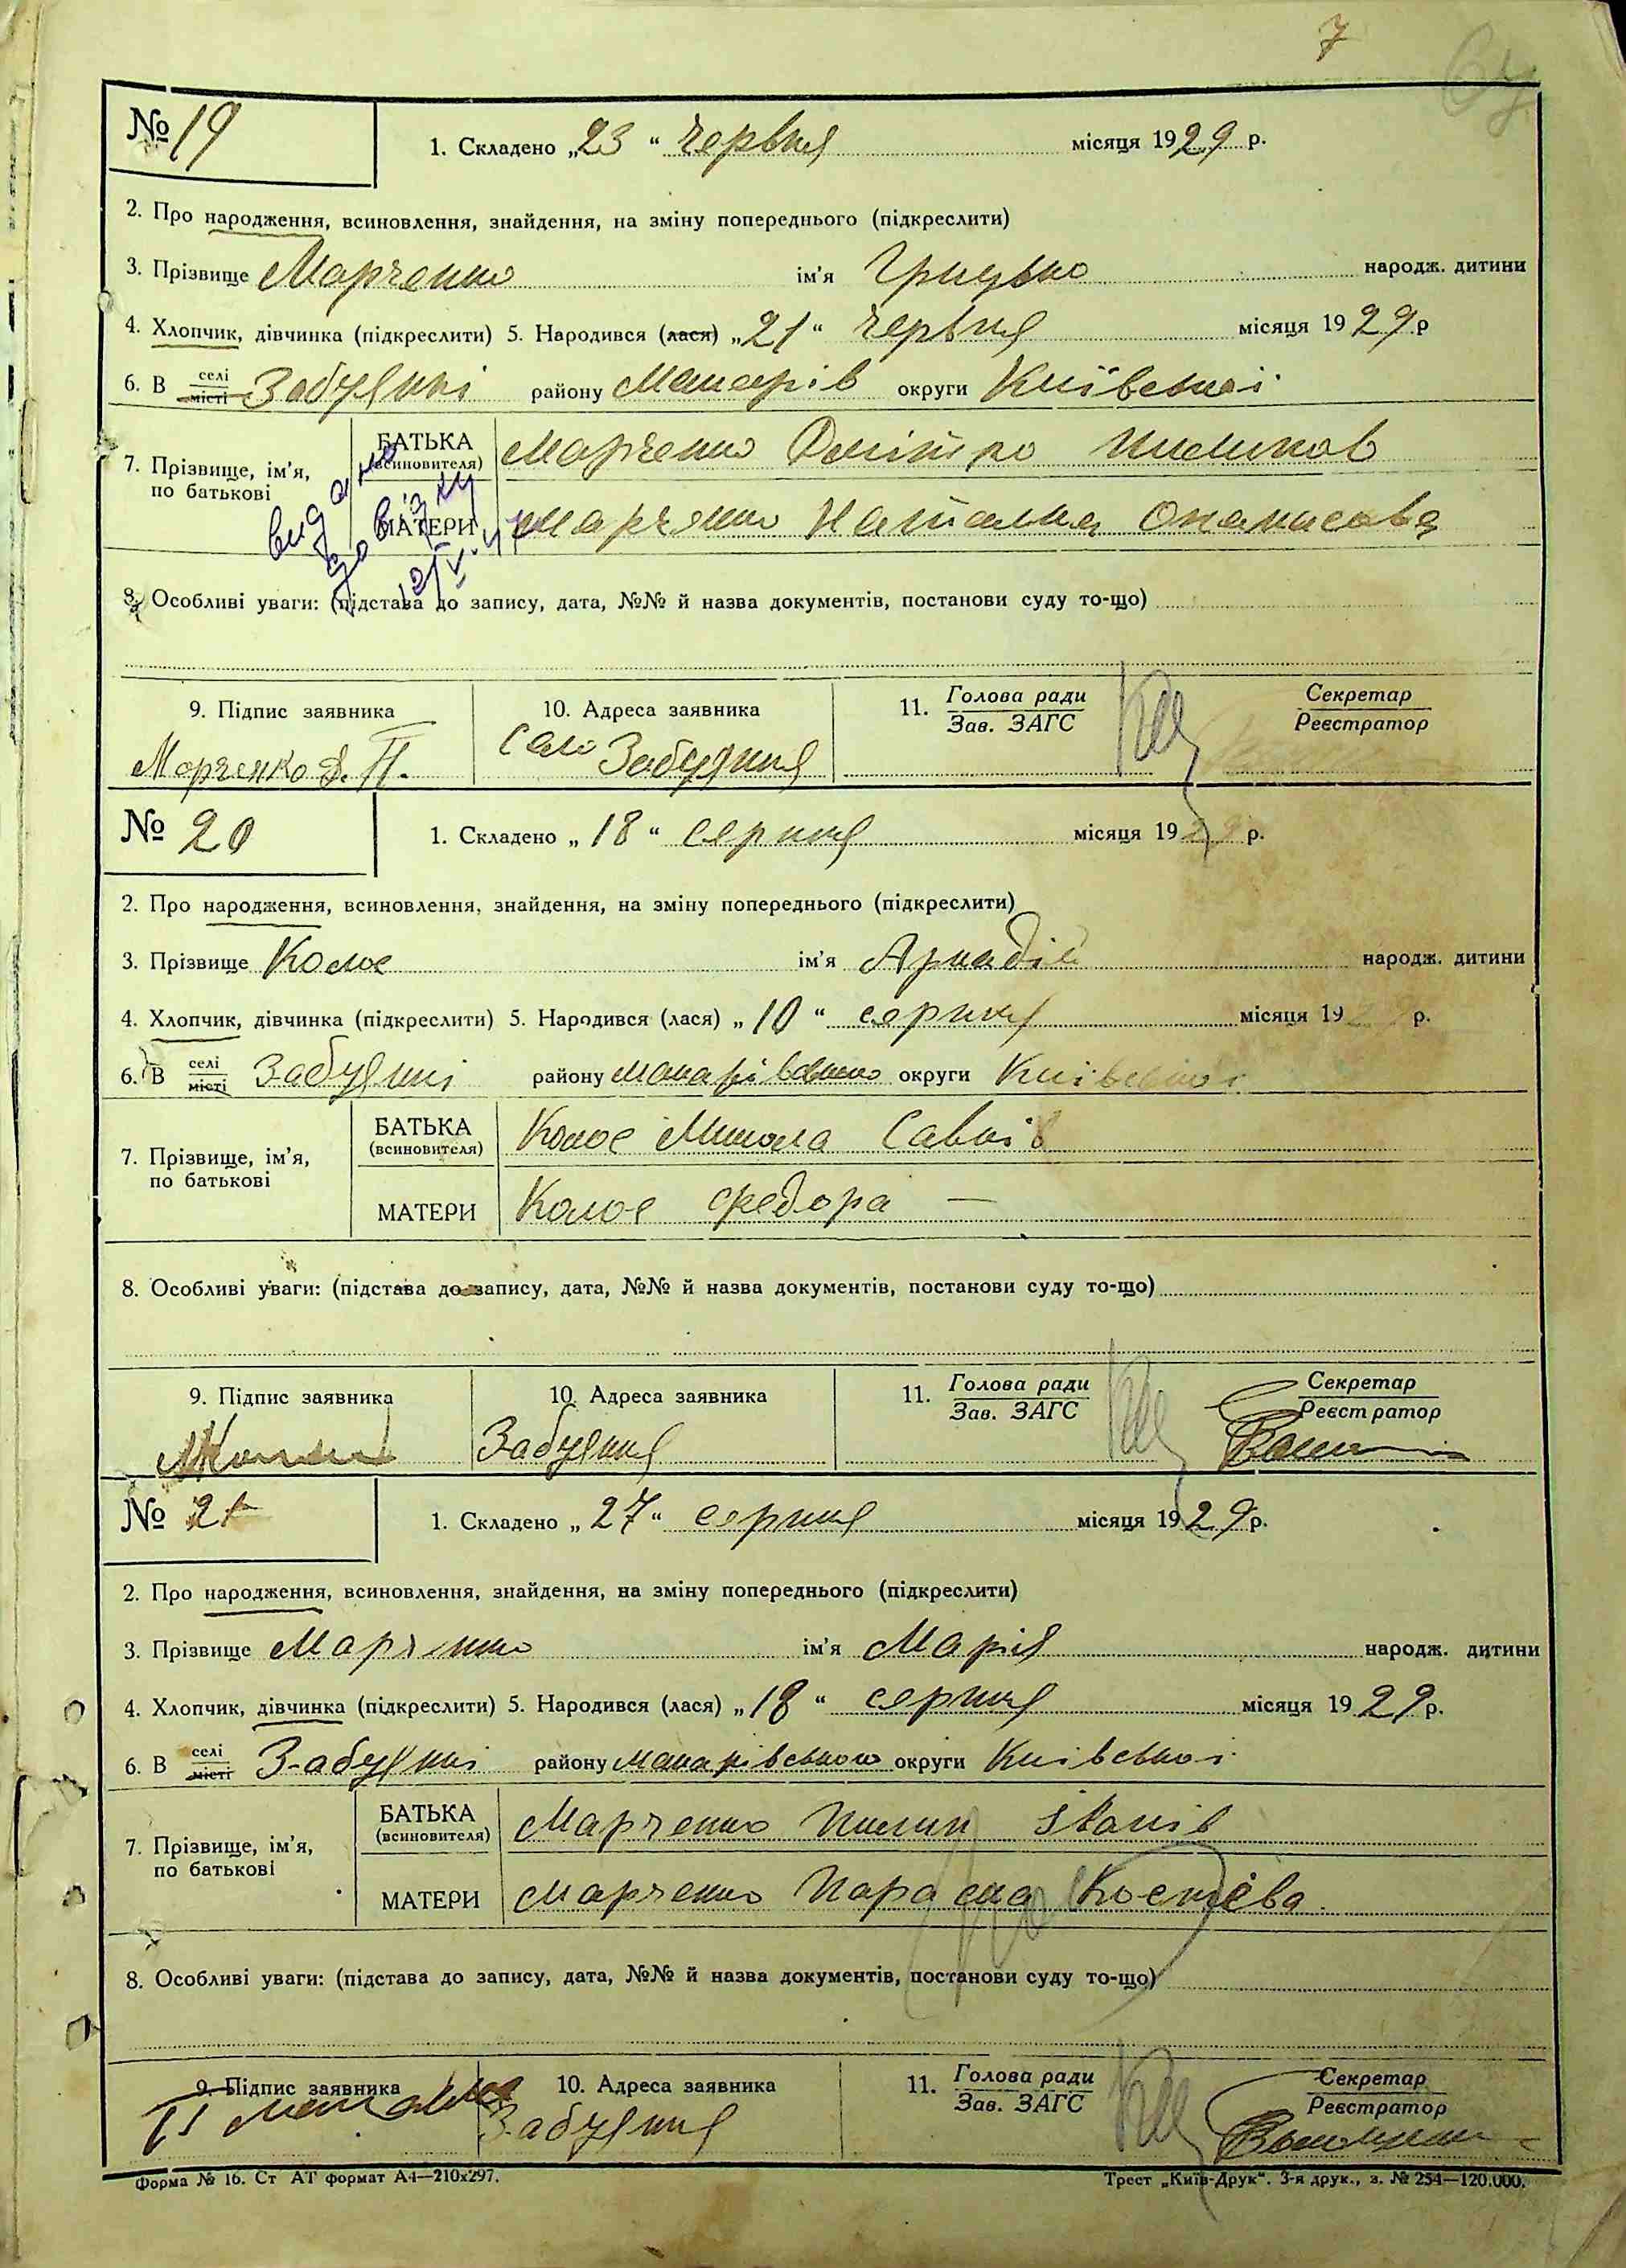 7
№ 19
1. Складено „23“ червня місяця 1929 р.
2. Про народження, всиновлення, знайдення, на зміну попереднього (підкреслити)
3. Прізвище Марченко ім'я Грицько народж. дитини
4. Хлопчик, дівчинка (підкреслити) 5. Народився (лася) „21“ червня місяця 1929 р
6. В селі місті Забуянні району Макарів округи Київської
7. Прізвище, ім'я, по батькові
БАТЬКА (всиновителя) Марченко Дмітро Пилипов
МАТЕРИ Марченко Наталка Опанасова
видано довідку
8. Особливі уваги: (підстава до запису, дата, №№ й назва документів, постанови суду то-що)
9. Підпис заявника 10. Адреса заявника 11. Голова ради Зав. ЗАГС Секретар Реєстратор
Марченко Д. П. Село Забуяння
№ 20
1. Складено „18“ серпня місяця 1929 р.
2. Про народження, всиновлення, знайдення, на зміну попереднього (підкреслити)
3. Прізвище Колос ім'я Аркадій народж. дитини
4. Хлопчик, дівчинка (підкреслити) 5. Народився (лася) „10“ серпня місяця 1929 р.
6. В селі місті Забуянні району Макарівського округи Київської
7. Прізвище, ім'я, по батькові
БАТЬКА (всиновителя) Колос Микола Савків
МАТЕРИ Колос Федора —
8. Особливі уваги: (підстава до запису, дата, №№ й назва документів, постанови суду то-що)
9. Підпис заявника 10. Адреса заявника 11. Голова ради Зав. ЗАГС Секретар Реєстратор
Забуяння
№ 21
1. Складено „27“ серпня місяця 1929 р.
2. Про народження, всиновлення, знайдення, на зміну попереднього (підкреслити)
3. Прізвище Марченко ім'я Марія народж. дитини
4. Хлопчик, дівчинка (підкреслити) 5. Народився (лася) „18“ серпня місяця 1929 р.
6. В селі місті Забуянні району Макарівського округи Київської
7. Прізвище, ім'я, по батькові
БАТЬКА (всиновителя) Марченко Пилип Іванів
МАТЕРИ Марченко Параска Костієва
8. Особливі уваги: (підстава до запису, дата, №№ й назва документів, постанови суду то-що)
9. Підпис заявника 10. Адреса заявника 11. Голова ради Зав. ЗАГС Секретар Реєстратор
Забуяння
Форма № 16. Ст АТ формат А4—210х297. Трест „Київ-Друк“. 3-я друк., з. № 254—120.000.